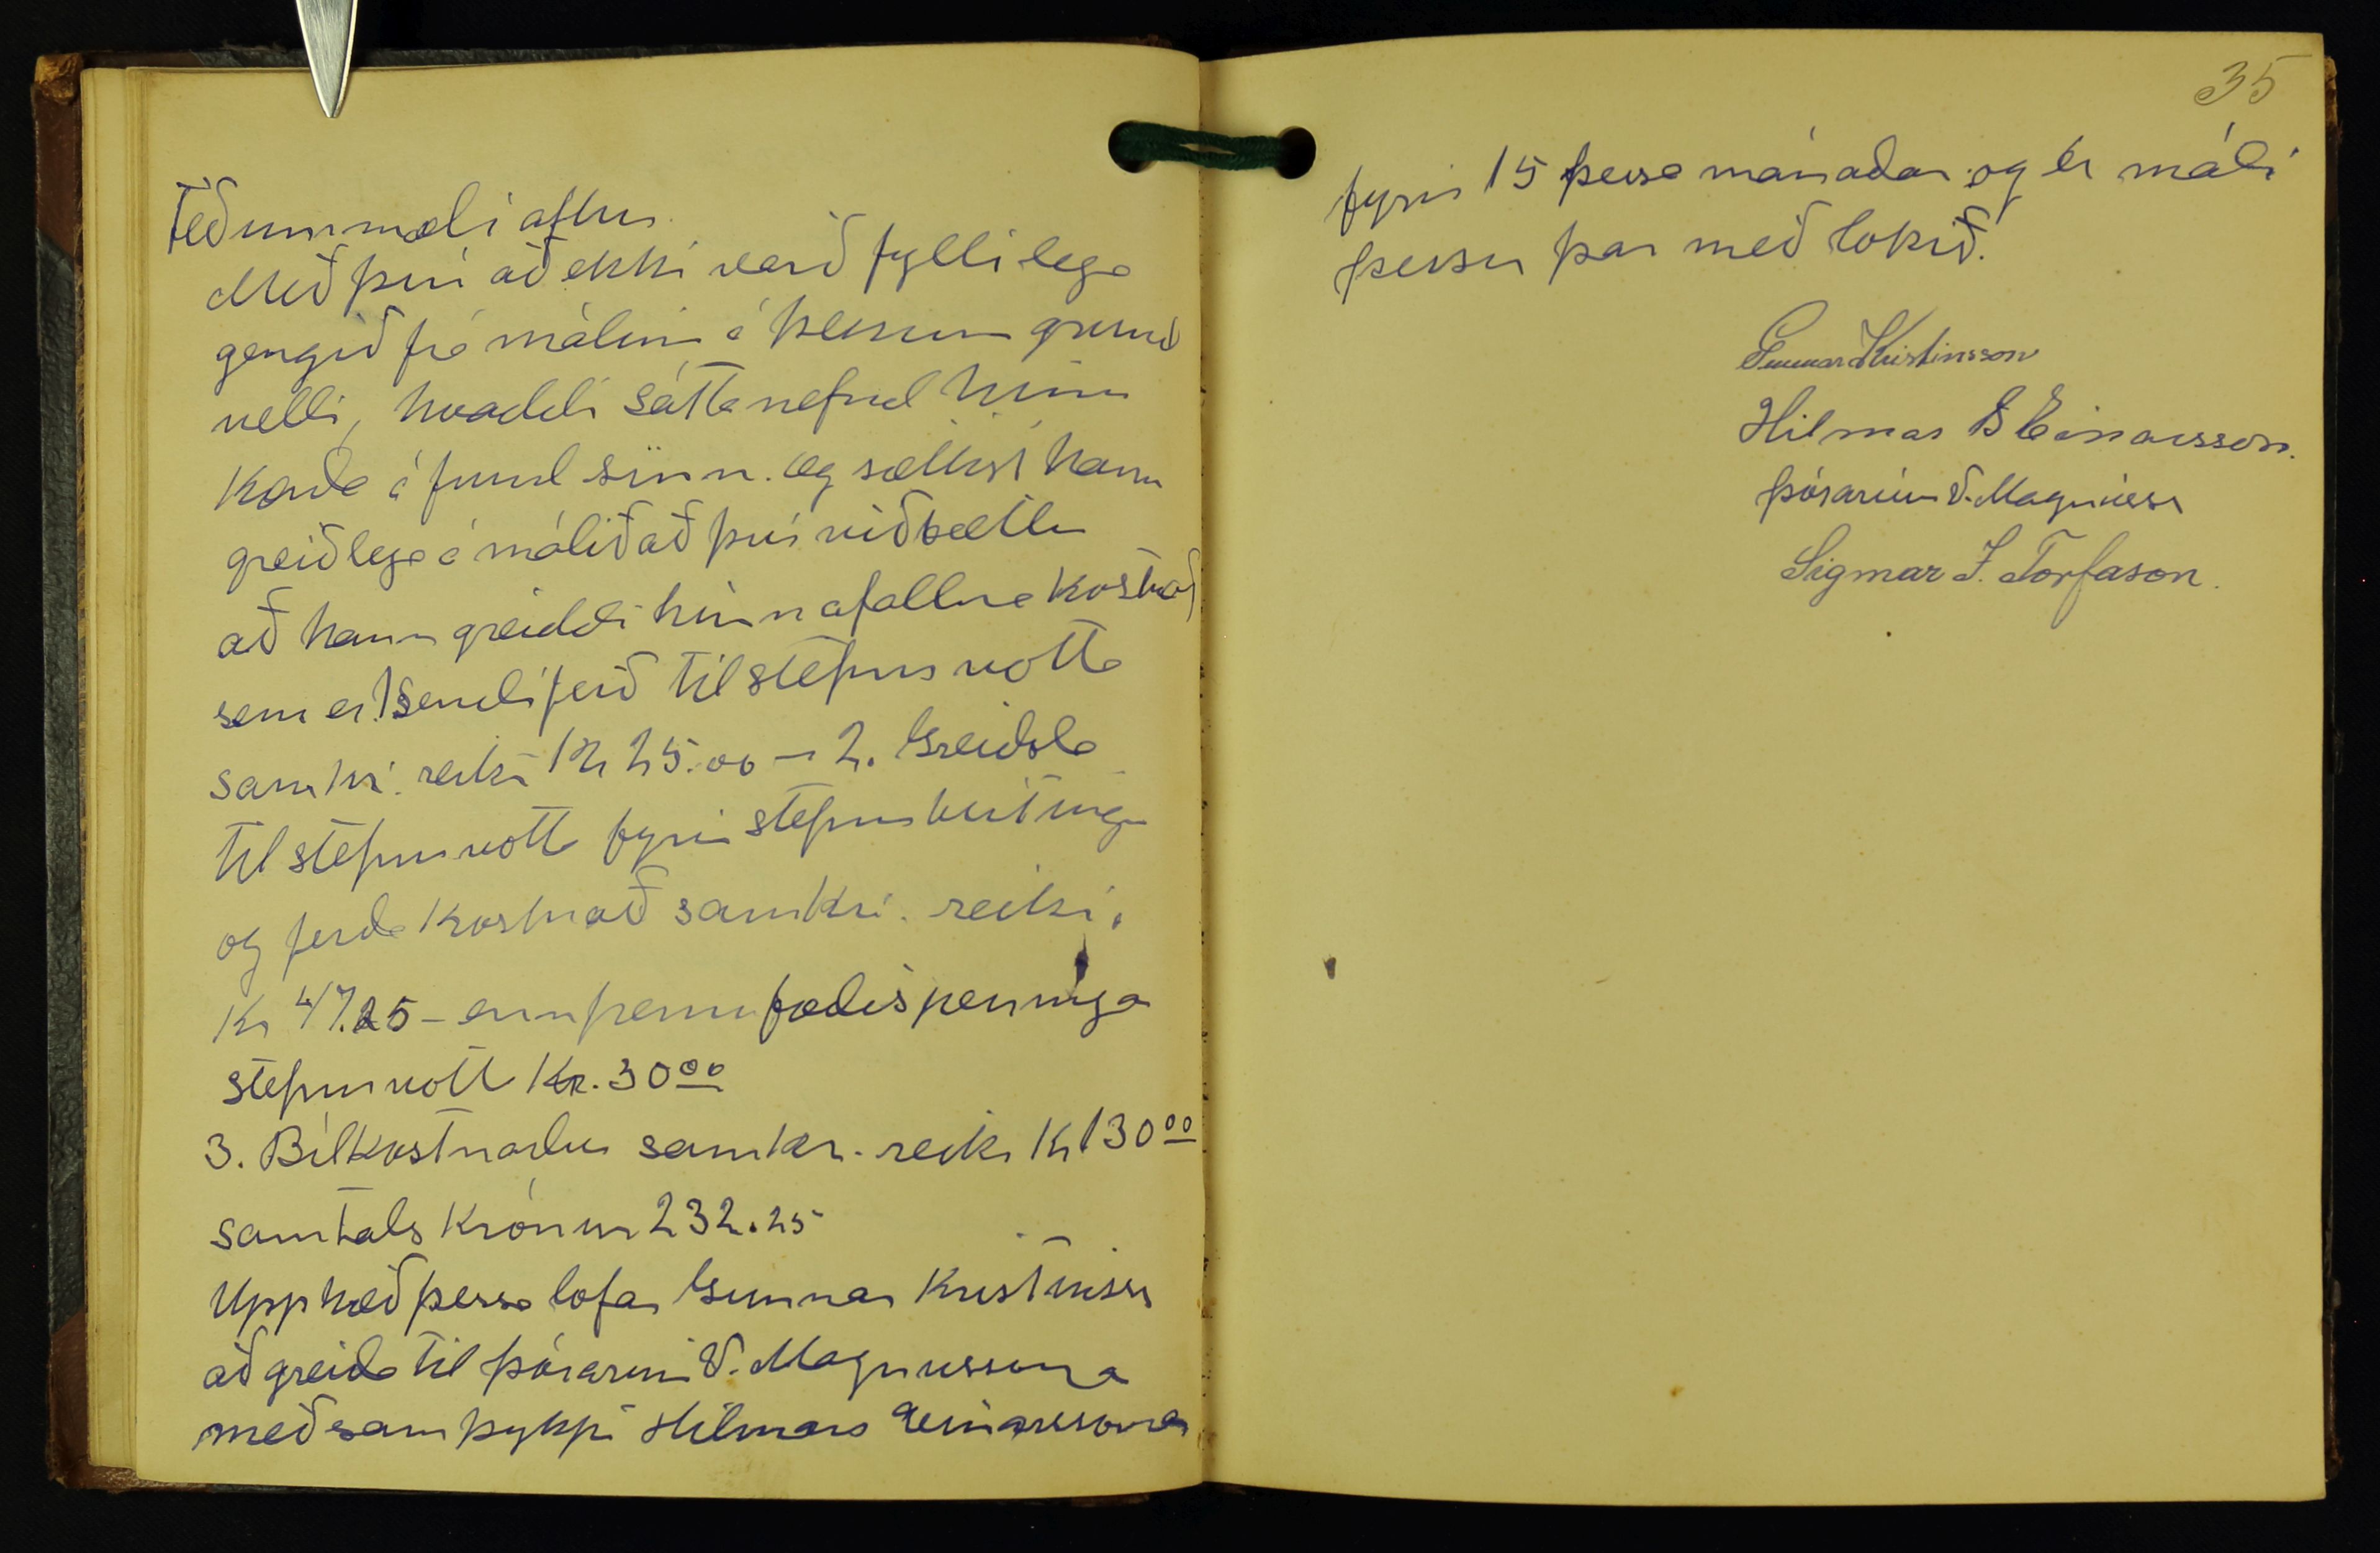 téð ummæli aftur.
Með því að ekki varð fyllilega
gengið frá málinu á þessum grund
velli, kvaddi sáttanefnd hinn
Kærða á fund sinn. og sættist hann
greiðlega á málið að því viðbættu
að hann greiddi hinn áfallna Kostnað
sem er 1 sendiferð til stefnuvotta
samkv. reikn Kr 25.00 - 2. Greiðsla
til stefnuvotta fyrir stefnubirtingu
og ferðakostnað samkv. reikn.
Kr 47.25 - ennfremur fæðispeninga
stefnuvott Kr. 30 00
3. Bílkostnaður samkv. reikn Kr 130 00
samtals Krónur 232.25
Upphæð þessa lofar Gunnar Kristinss
að greiða til Þórarins V. Magnússonar
með samþykki Hilmars Einarssonar
35
fyrir 15 þessa mánaðar og er máli
þessu þar með lokið.
Gunnar Kristinsson
Hilmar B Einarsson.
Þórarinn V. Magnúss
Sigmar I. Torfason.